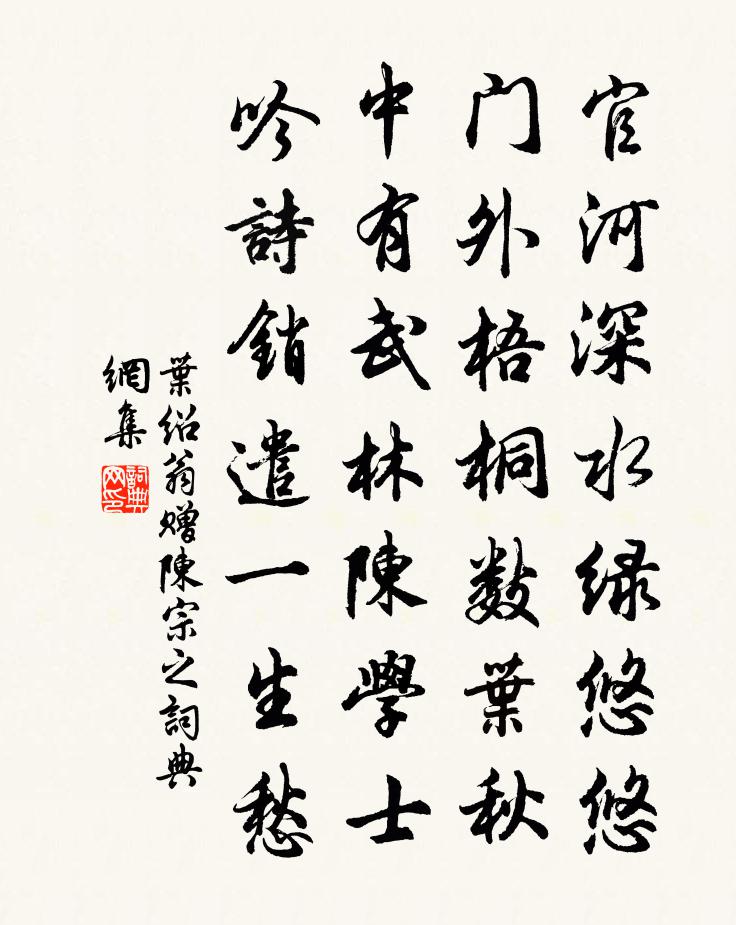 官河深水绿悠悠
门外梧桐数葉秋
中有武林陳學士
吟詩銷遣一生愁
葉绍翁赠陳宗之詞典
網集
詞典
网印